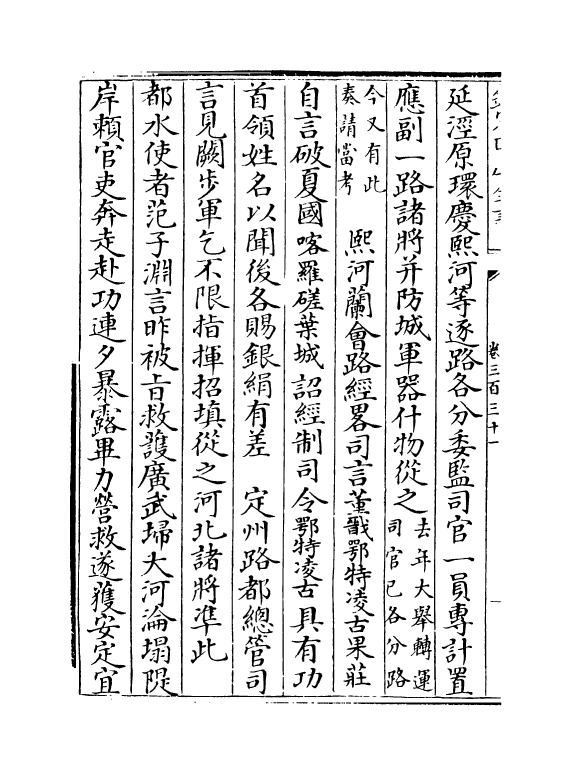 卷三百三十一
延涇原環慶熙河等逐路各分委監司官一員專計置
應副一路諸將并防城軍器什物從之去年大舉轉運司官已各分路
今又有此奏請當考　熙河蘭會路經畧司言董戩鄂特凌古果莊
自言破夏國喀羅磋葉城詔經制司令鄂特凌古具有功
首領姓名以聞後各賜銀絹有差　定州路都總管司
言見闕步軍乞不限指揮招填從之河北諸將準此
都水使者范子淵言昨被㫖救䕶廣武埽大河淪塌隄
岸賴官吏奔走赴功連夕暴露畢力營救遂獲安定宜